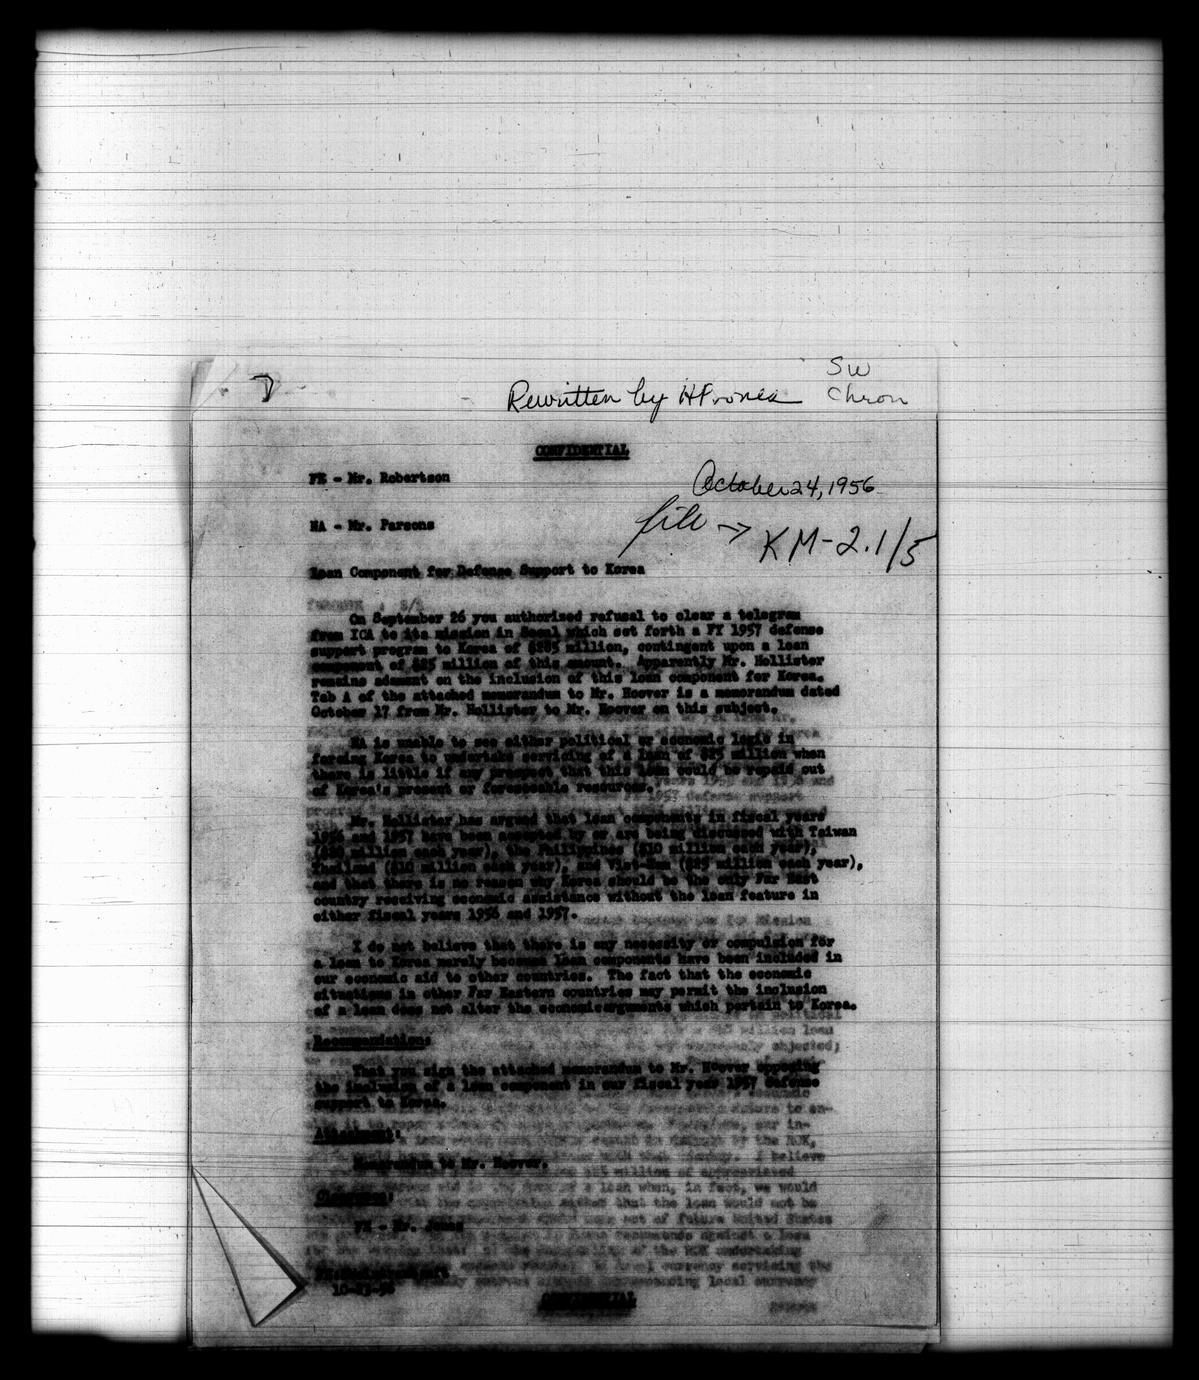 SW
Rewritten by
Chron
CONFIDENTIAL
FE - Mr. Robertson
October 24, 1956
NA - Mr. Parsons
file → KM-2.1/5
Loan Component for Defense Support to Korea
On September 26 you authorized refusal to clear a telegram
from ICA to its mission in Seoul which set forth a FY 1957 defense
support program to Korea of million, contingent upon a loan
component of $25 million of this amount. Apparently Mr. Hollister
remains adamant on the inclusion of this loan component for Korea.
Tab A of the attached memorandum to Mr. Hoover is a memorandum dated
October 17 from Mr. Hollister to Mr. Hoover on this subject.
NA is unable to see either political or economic logic in
forcing Korea to undertake servicing of a loan of $25 million when
there is little if any prospect that this loan could be repaid out
of Korea's present or foreseeable resources.
Mr. Hollister has argued that loan components in fiscal years
1956 and 1957 have been accepted by or are being discussed with Taiwan
million each year), the Philippines ($10 million each year),
Thailand ($10 million each year), and Viet-Nam ($25 million each year),
and that there is no reason why Korea should be the only Far East
country receiving economic assistance without the loan feature in
either fiscal years 1956 and 1957.
I do not believe that there is any necessity or compulsion for
a loan to Korea merely because loan components have been included in
our economic aid to other countries. The fact that the economic
situations in other Far Eastern countries may permit the inclusion
of a loan does not alter the economic arguments which pertain to Korea.
Recommendation:
That you sign the attached memorandum to Mr. Hoover opposing
the inclusion of a loan component in our fiscal year 1957 defense
support to Korea.
Attachment:
Memorandum to Mr. Hoover.
Clearance:
FE - Mr. Jones
10-23-56
CONFIDENTIAL